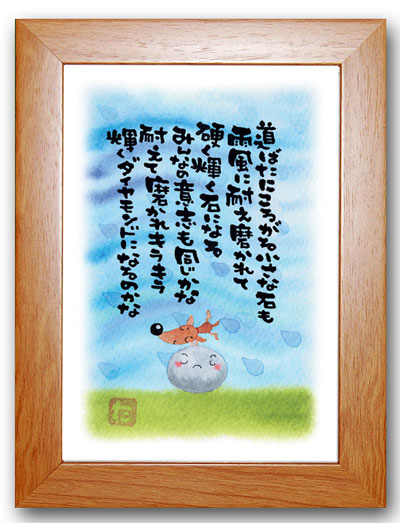 道ばたにころがる小さな石も
雨風に耐え磨かれて
硬く輝く石になる
みんなの意志も同じかな
耐えて磨かれキラキラ
輝くダイヤモンドになるのかな